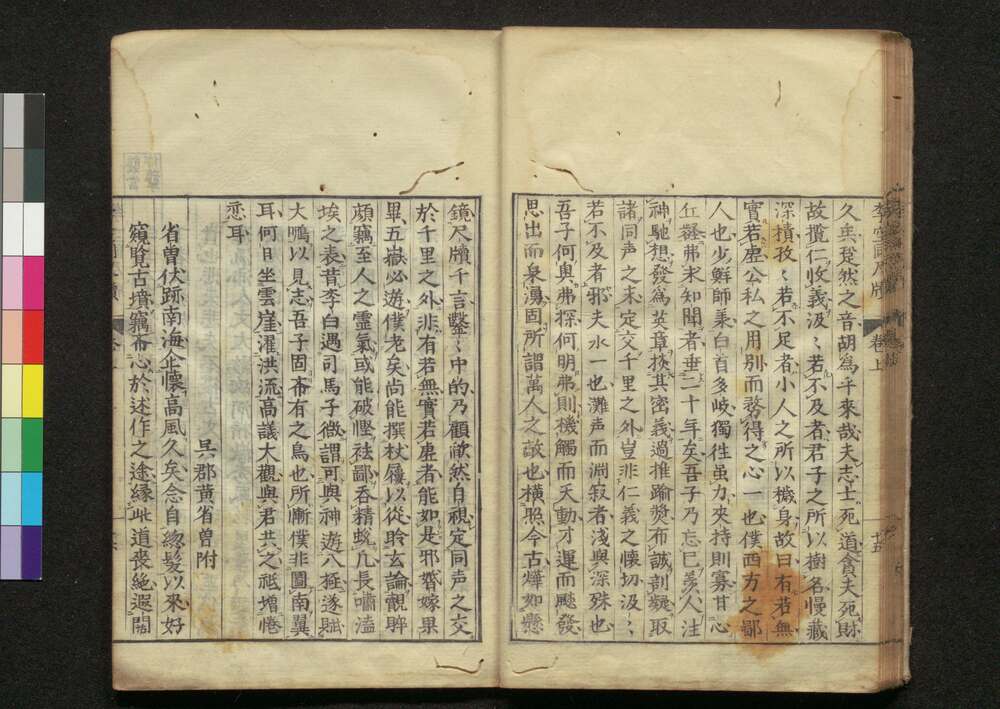 久矣跫然之音胡爲乎來哉夫志士死道貪夫死財
故攬仁收義汲〻若不及者君子之所以樹名慢藏
深積孜〻若不足者小人之所以機身故曰有若無
實若虛公私之用別而務得之心一也僕西方之鄙
人也少鮮師秉白首多岐獨徃虽力夾持則寡甘心
丘壑弗求知聞者垂二十年矣吾子乃忘已羡人注
神馳想發爲英章挨其密義過推踰奬布誠剖凝取
諸同声之求定交千里之外豈非仁義之懷切汲〻
若不及者邪夫水一也灘声而淵寂者淺與深殊也
吾子何奥弗探何明弗則機觸而天動才運而飈發
思出而泉湧固所謂萬人之敵也橫照今古燁如懸
鏡尺牘千言鑿〻中的乃顧欿然自視定同声之交
於千里之外非有若無實若虛者能如是邪婚嫁果
畢五嶽必遊僕老矣尚能撰杖屨以從聆玄論覩眸
頑竊至人之靈氣或能破慳袪鄙吞精蛻凢長嘯溘
埃之表昔李白遇司馬子微謂可與神遊八極遂賦
大鵬以見志吾子固希有之鳥也所慚僕非圖南翼
耳何日坐雲崖濯洪流高議大觀與君共之祗增惓
悉耳
吳郡黃省曾附
省曾伏跡南海企懷高風久矣念自緫髮以來好
窺覧古墳竊希心於述作之途緣此道喪絶遐闊
卷上
十五